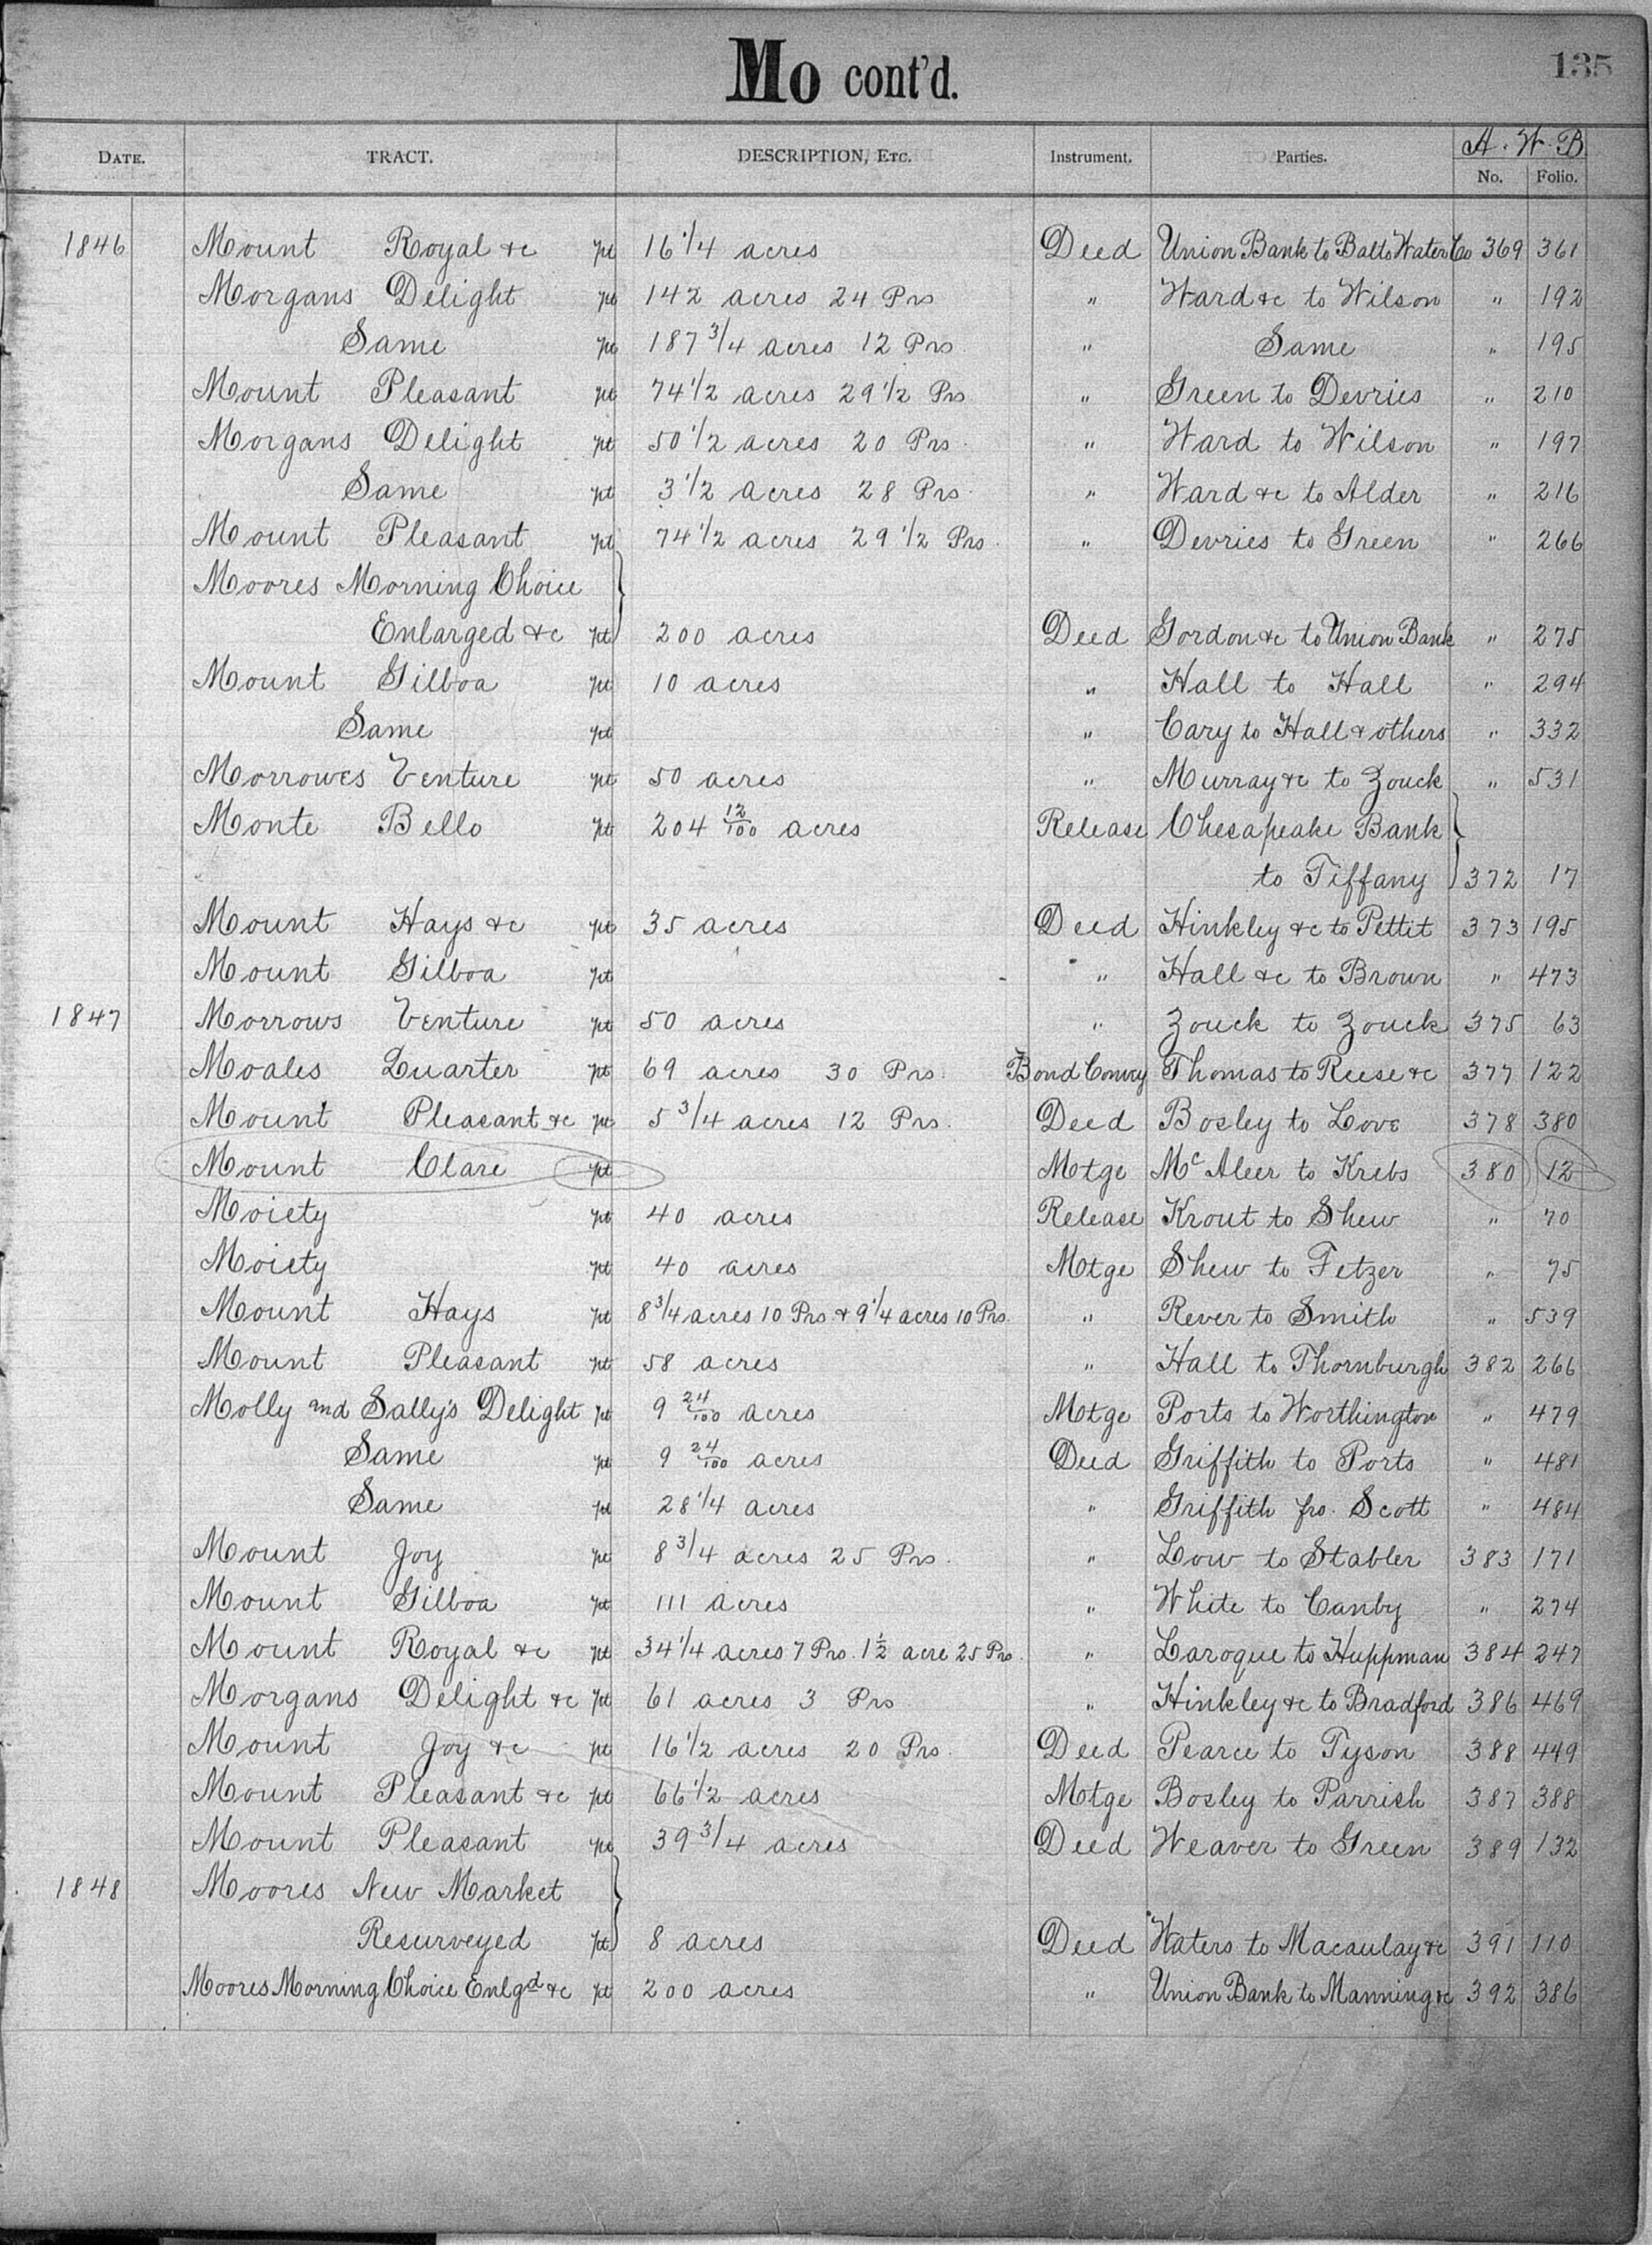 Mo cont'd.
135
DATE. TRACT. DESCRIPTION, ETC. Instrument. Parties. A. W. B.
No. Folio.
1846 Mount Royal &c pt 16 1/4 acres Deed Union Bank to Balto Water Co 369 361
Morgans Delight pt 142 acres 24 Prs " Ward &c to Wilson " 192
Same pt 187 3/4 acres 12 Prs " Same " 195
Mount Pleasant pt 74 1/2 acres 29 1/2 Prs " Green to Devries " 210
Morgans Delight pt 50 1/2 acres 20 Prs. " Ward to Wilson " 197
Same pt 3 1/2 acres 28 Prs. " Ward &c to Alder " 216
Mount Pleasant pt 74 1/2 acres 29 1/2 Prs. " Devries to Green " 266
Moores Morning Choice
Enlarged &c pt 200 acres Deed Gordon &c to Union Bank " 275
Mount Gilboa pt 10 acres " Hall to Hall " 294
Same pt " Cary to Hall & others " 332
Morrowes Venture pt 50 acres " Murray &c to Zouck " 531
Monte Bello pt 204 12/100 acres Release Chesapeake Bank
to Tiffany 372 17
Mount Hays &c pt 35 acres Deed Hinkley &c to Pettit 373 195
Mount Gilboa pt " Hall &c to Brown " 473
1847 Morrows Venture pt 50 acres " Zouck to Zouck 375 63
Moales Quarter pt 69 acres 30 Prs. Bond Convey Thomas to Reese &c 377 122
Mount Pleasant &c pt 5 3/4 acres 12 Prs. Deed Bosley to Love 378 380
Mount Clare pt Motge McAleer to Krebs 380 12
Moiety pt 40 acres Release Krout to Shew " 70
Moiety pt 40 acres Motge Shew to Fetzer " 75
Mount Hays pt 8 3/4 acres 10 Prs & 9 1/4 acres 10 Prs. " Rever to Smith " 539
Mount Pleasant pt 58 acres " Hall to Thornburgh 382 266
Molly and Sally's Delight pt 9 24/100 acres Motge Ports to Worthington " 479
Same pt 9 24/100 acres Deed Griffith to Ports " 481
Same pt 28 1/4 acres " Griffith fro. Scott " 484
Mount Joy pt 8 3/4 acres 25 Prs. " Low to Stabler 383 171
Mount Gilboa pt 111 acres " White to Canby " 274
Mount Royal &c pt 34 1/4 acres 7 Prs. 1 1/2 acre 25 Prs. " Laroque to Huppman 384 247
Morgans Delight &c pt 61 acres 3 Prs " Hinkley &c to Bradford 386 469
Mount Joy &c pt 16 1/2 acres 20 Prs. Deed Pearce to Tyson 388 449
Mount Pleasant &c pt 66 1/2 acres Motge Bosley to Parrish 387 388
Mount Pleasant pt 39 3/4 acres Deed Weaver to Green 389 132
1848 Moores New Market
Resurveyed pt 8 acres Deed Waters to Macaulay &c 391 110
Moores Morning Choice Enlgd &c pt 200 acres " Union Bank to Manning &c 392 386